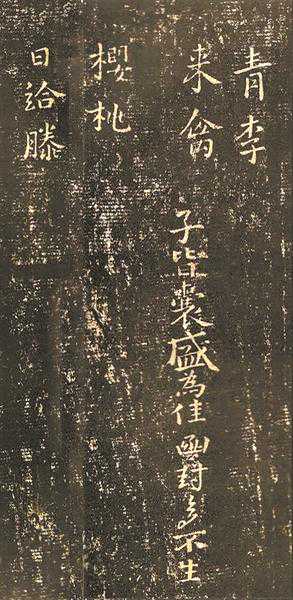 青李
来禽 子皆囊盛為佳函封多不生
櫻桃
日給滕